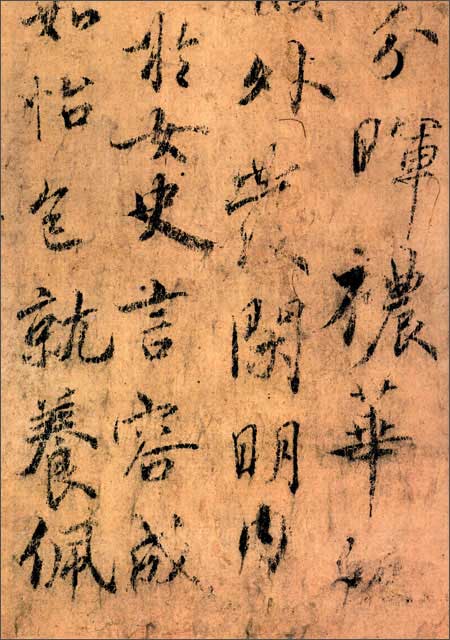 分暉襛華
外閑明內
於女史言容成
如怡色就養佩